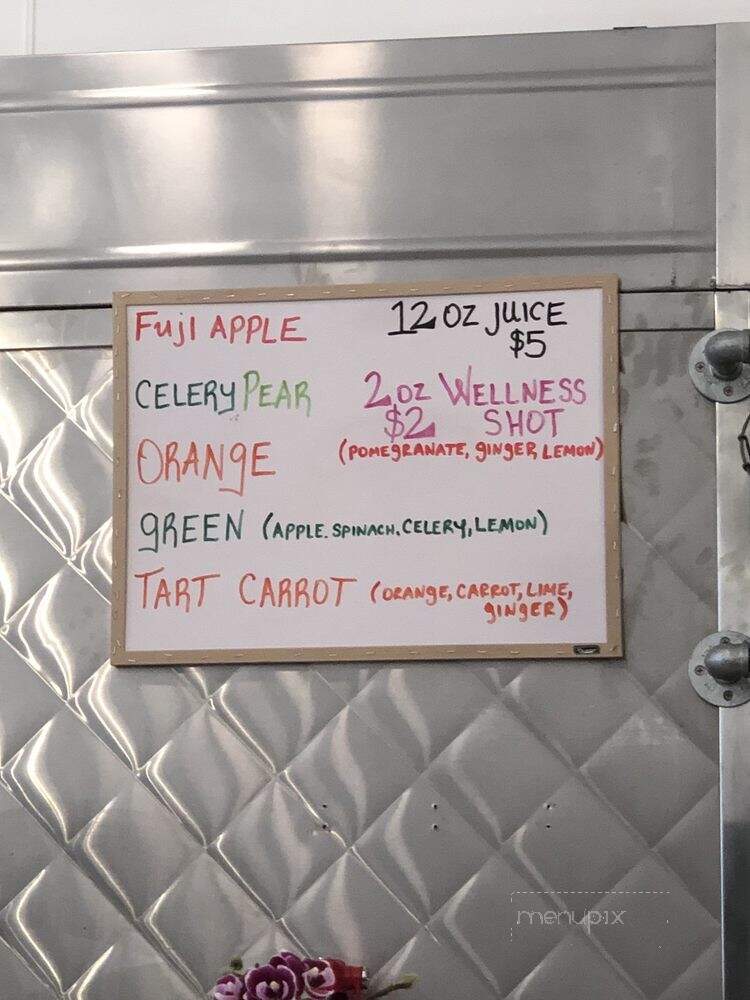 FUJI APPLE
12 OZ JUICE
$5
CELERY PEAR
2 OZ WELLNESS
$2 SHOT
(POMEGRANATE, GINGER, LEMON)
ORANGE
GREEN (APPLE. SPINACH. CELERY, LEMON)
TART CARROT (ORANGE, CARROT, LIME,
GINGER)
menupix